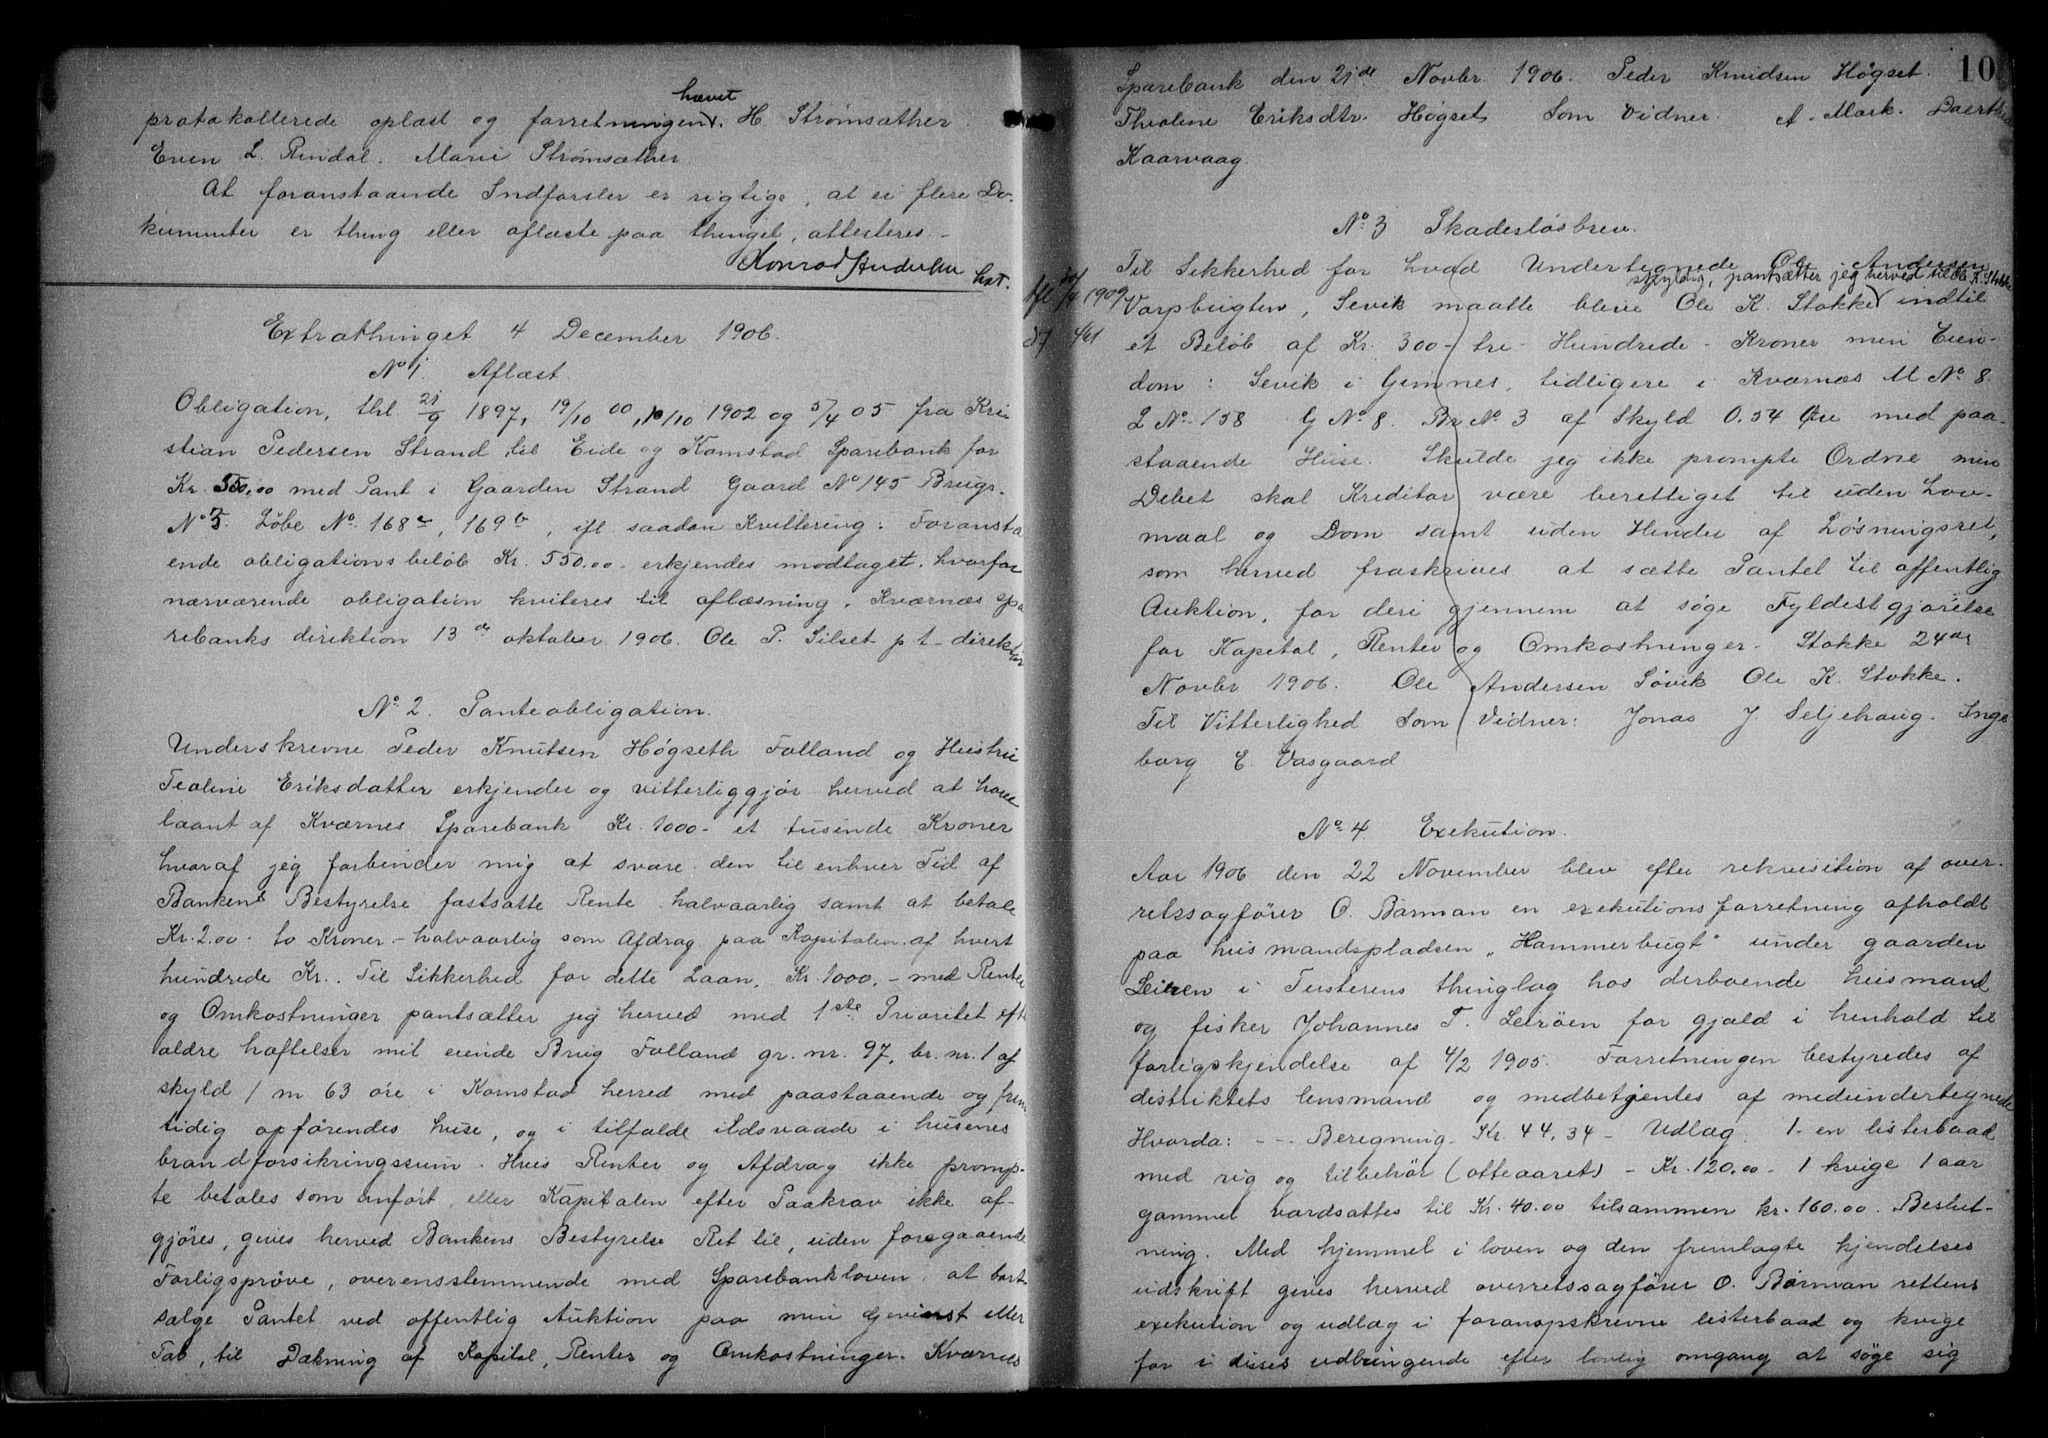 hævet
protokollerede oplæst og forretningen. H. Strømsæther
Even L. Rindal. Marie Strømsæther.
At foranstaaende Indførsler er rigtige, at ei flere Do-
kumenter er thing eller aflæste paa thinget, attesteres -
Konrad Anderssen
bst.
Extrathinget 4 December 1906.
No 1 Aflæst.
Obligation, thl 21/9 1897, 19/10 00, 10/10 1902 og 5/4 05 fra Kri
stian Pedersen Strand til Eide og Komstad Sparebank for
Kr. 550,00 med Pant i Gaarden Strand Gaard No 145 Brugs-
No 5. Løbe No. 168a, 169b, ifl. saadan Kvittering: Foransta
ende obligationsbeløb Kr. 550.00 erkjendes modtaget, hvorfor
nærværende obligation kviteres til aflæsning. Kværnæs spa
rebanks direktion 13de oktober 1906. Ole P. Silset p t. direktør
No 2. Panteobligation.
Underskrevne Peder Knutsen Høgseth Folland og Hustru
Teoline Eriksdatter erkjender og vitterliggjør herved at have
laant af Kværnes Sparebank Kr. 1000 - et tusinde Kroner
hvoraf jeg forbinder mig at svare den til enhver Tid af
Bankens Bestyrelse fastsatte Rente halvaarlig samt at betale
Kr. 2.00 - to Kroner - halvaarlig som Afdrag paa Kapitalen af hvert
hundrede Kr. Til Sikkerhed for dette Laan, Kr. 1000. - med Rente
og Omkostninger pantsætter jeg herved med 1ste Prioritet eft
ældre hæftelser mit eiende Brug Folland gr. nr. 97, br. nr. 1 af
skyld 1 m 63 øre i Komstad herred med paastaaende og frem
tidig opførendes huse, og i tilfælde ildsvaade i husenes
brandforsikringssum. Hvis Renter og Afdrag ikke promp-
te betales som anført, eller Kapitalen efter Paakrav ikke af-
gjøres, gives herved Bankens Bestyrelse Ret til, uden foregaaende
Forligsprøve, overensstemmende med Sparebankloven, at bort-
sælge Pantet ved offentlig Auktion paa min Gevinst eller
Tab, til Dækning af Kapital, Renter og Omkostninger. Kværnes
10
Sparebank den 21de Novbr. 1906. Peder Knudsen Høgset.
Theoline Eriksdtr. Høgset Som Vidner. A. Mork.
Kaarvaag.
No 3 Skadesløsbrev.
Til Sikkerhed for hvad Undertegnede Ole Andersen
skyldig, pantsætter jeg herved til Ole K. Stokke
1909
Vorpbugten, Sevik maatte blive Ole K. Stokke indtil
461
et Beløb af Kr. 300 - tre - Hundrede - Kroner min Eien-
dom: Sevik i Gimnes, tidligere i Kværnæs M No. 8.
L No. 158 G No 8. Br No 3 af Skyld 0.54 Øre med paa-
staaende Huse. Skulde jeg ikke prompte Ordne min
Debet skal Kreditor være berettiget til uden Lov-
maal og Dom samt uden Hinder af Løsningsret,
som herved fraskrives at sætte Pantet til offentlig
Auktion, for deri gjennem at søge Fyldestgjørelse
for Kapital, Renter og Omkostninger. Stokke 24de
Novbr 1906. Ole Andersen Søvik Ole K. Stokke.
Til Vitterlighed Som Vidner: Jonas J Seljehaug. Inge
borg E. Vasgaard
No 4 Exekution.
Aar 1906 den 22 November blev efter rekvisition af over-
retssagfører O. Børman en exekutionsforretning afholdt
paa husmandspladsen "Hammerbugt" under gaarden
Leiren i Tusterens thinglag hos derboende husmand
og fisker Johannes T. Leirøen for gjæld i henhold til
forligskjendelse af 4/2 1905. Forretningen bestyredes af
distriktets lensmand og medbetjentes af medundertegnede
Hvorda: - - - Beregning Kr. 44,34 - Udlæg. 1 en listerbaad
med rig og tilbehør (otteaaret) - Kr. 120.00 - 1 kvige 1 aar
gammel værdsattes til Kr. 40.00 tilsammen kr. 160.00. Beslut-
ning. Med hjemmel i loven og den fremlagte kjendelses
udskrift gives herved overretssagfører O. Børman rettens
exekution og udlæg i foranopskrevne listerbaad og kvige
for i disses udbringende efter lovlig omgang at søge sig